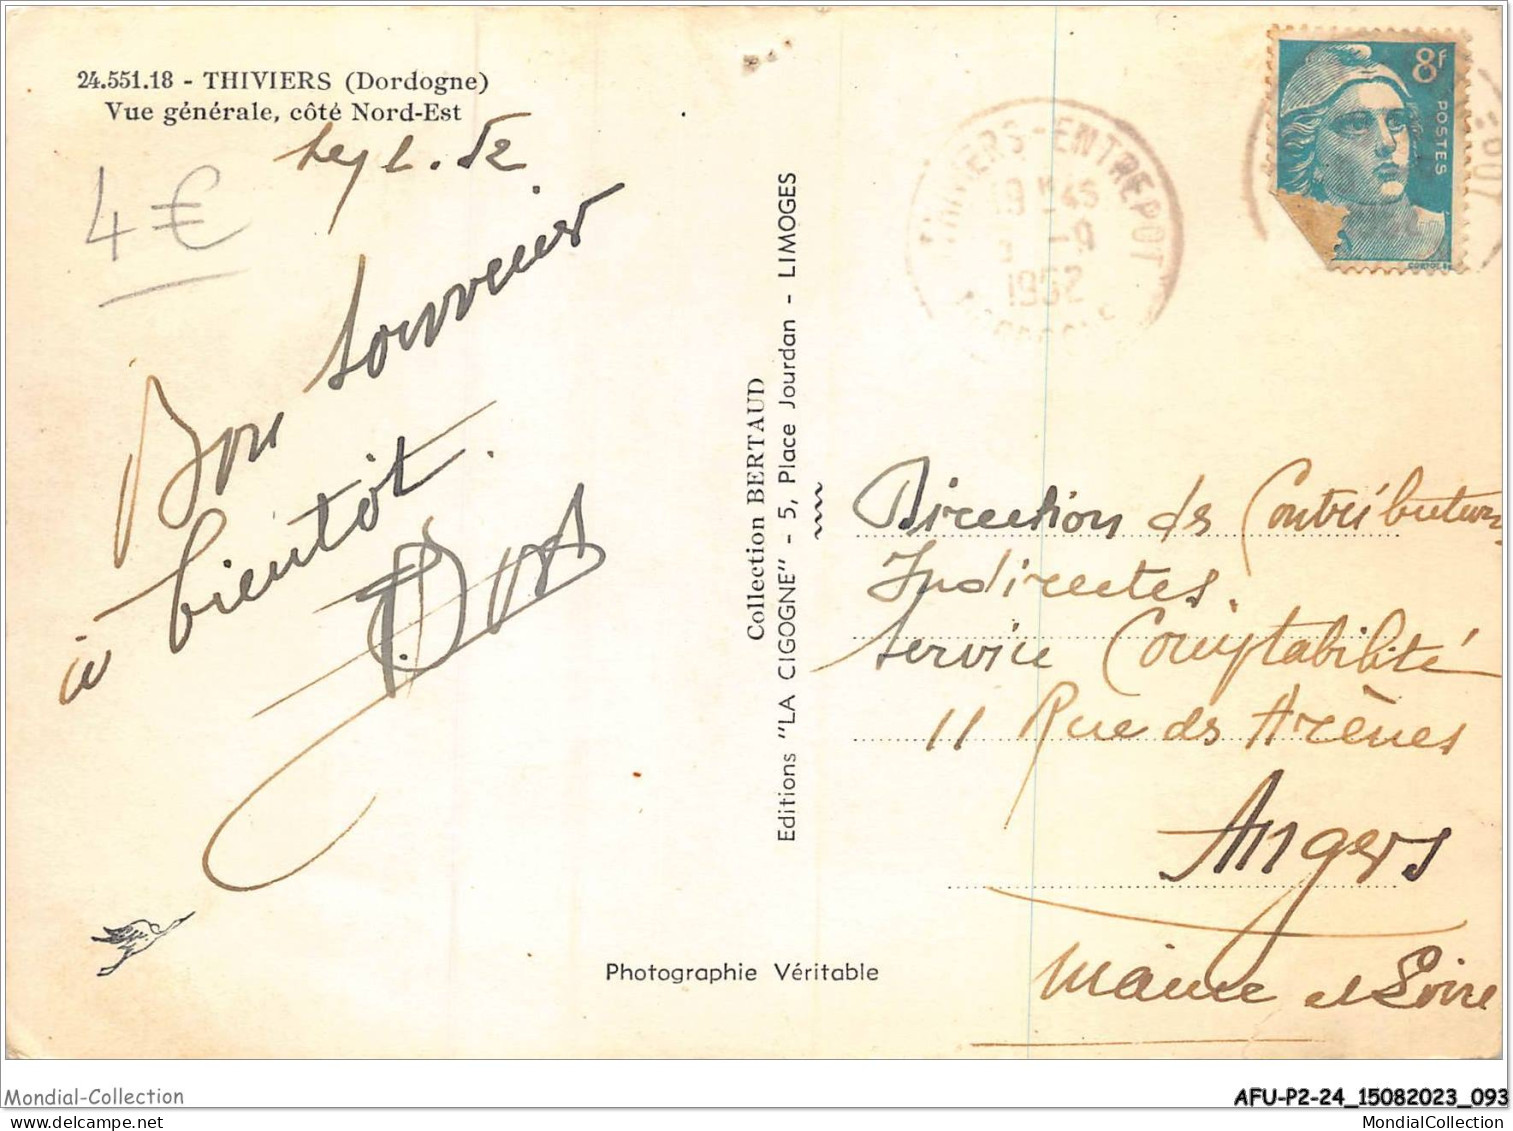 24.551.18 - THIVIERS (Dordogne)
Vue générale, côté Nord-Est
Sept. 52
4 €
Bon souvenir
à bientôt.
Collection BERTAUD
Editions "LA CIGOGNE" - 5, Place Jourdan - LIMOGES
THIVIERS-ENTREPOT
1952
8F
POSTES
Direction des Contributions
Indirectes.
Service Comptabilité
11 Rue des Arènes
Angers
Maine et Loire
Photographie Véritable
Mondial-Collection
AFU-P2-24_15082023_093
www.delcampe.net
MondialCollection